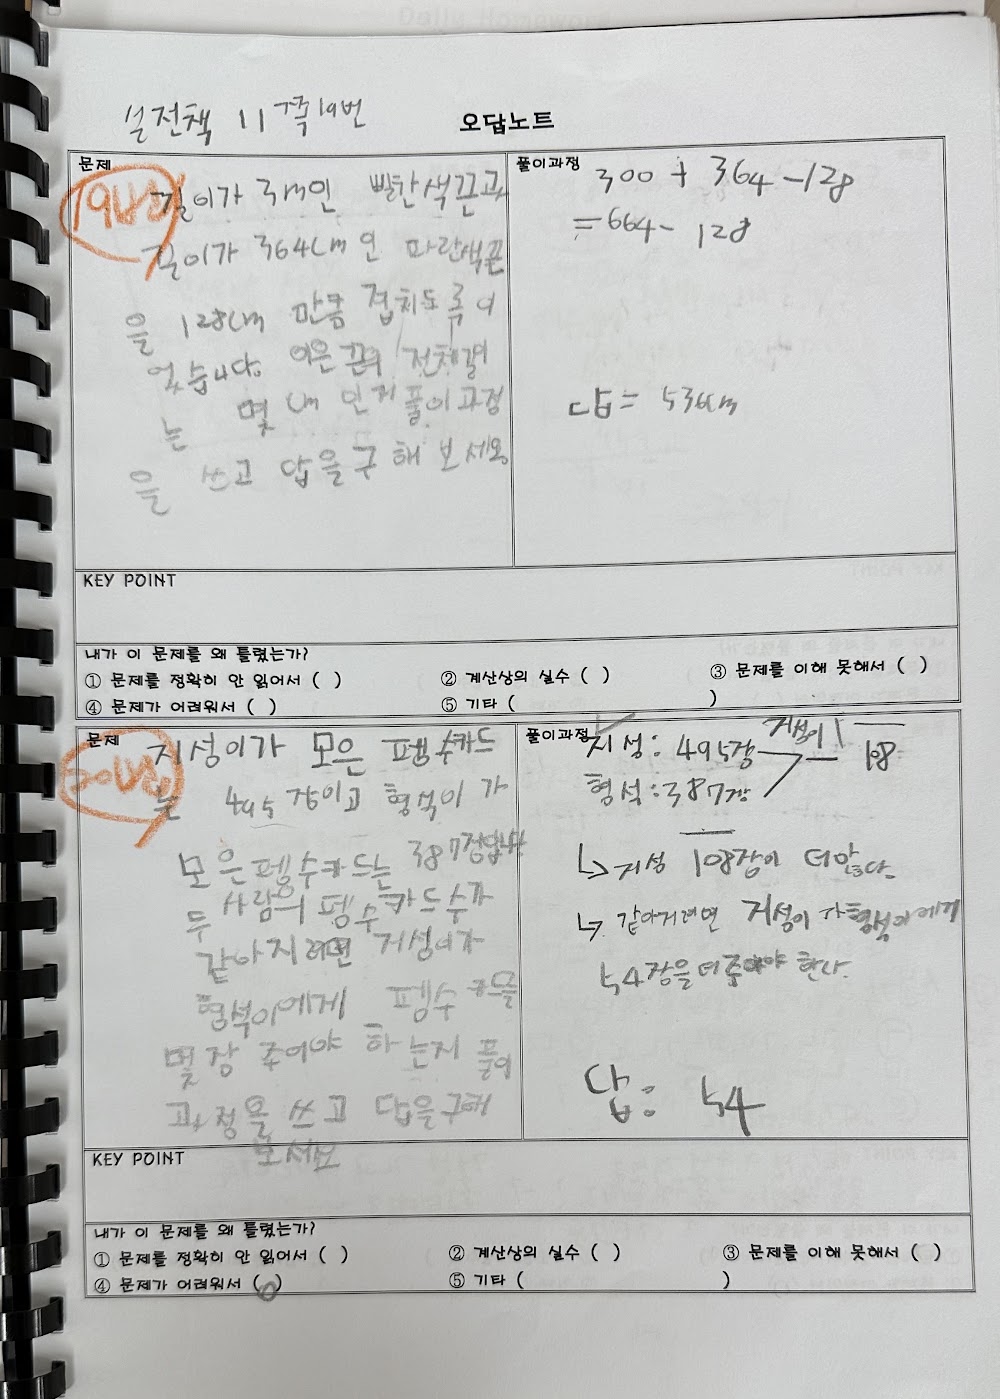 실전책 11쪽 19번
오답노트
문제
19번
길이가 3m인 빨간색끈과
길이가 364cm인 파란색끈
을 128cm 만큼 겹치도록 이
었습니다. 이은 끈의 전체길이
는 몇 cm 인지 풀이과정
을 쓰고 답을 구해 보세요
풀이과정
300 + 364 - 128
= 664 - 128
답 = 536cm
KEY POINT
내가 이 문제를 왜 틀렸는가?
① 문제를 정확히 안 읽어서 ( ) ② 계산상의 실수 ( ) ③ 문제를 이해 못해서 ( )
④ 문제가 어려워서 ( ) ⑤ 기타 ( )
문제
20번
지성이가 모은 펭수카드
는 495장이고 형석이가
모은펭수카드는 387장입니다
두 사람의 펭수카드수가
같아지려면 지성이가
형석이에게 펭수카드를
몇장 주어야 하는지 풀이
과정을 쓰고 답을구해
보세요
풀이과정
지성: 495장 지성이 108
형석: 387장
↳ 지성 108장이 더많다.
↳ 같아지려면 지성이가 형석이에게
54장을 더 줘야 한다.
답: 54
KEY POINT
내가 이 문제를 왜 틀렸는가?
① 문제를 정확히 안 읽어서 ( ) ② 계산상의 실수 ( ) ③ 문제를 이해 못해서 ( )
④ 문제가 어려워서 (O) ⑤ 기타 ( )